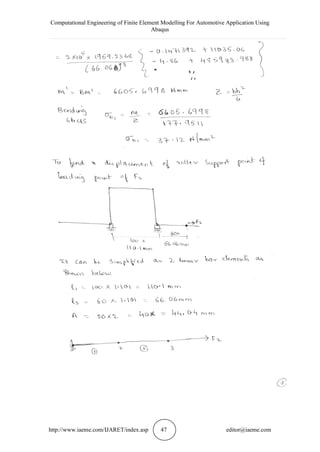 Computational Engineering of Finite Element Modelling For Automotive Application Using
Abaqus
- 0.1471392 + 11035.06
= 2×10⁵ × 1959.2368
- 4.86 + 485983.988
(66.06)³
M' = BM' = 6605.6998 N mm Z = bh²
6
Bending σb₁ = M = 6605.6998
Z 177.9511
σb₁ = 37.12 N/mm²
To find displacement of roller support point of
loading point of F₂
F₂
60×
100×
110.1 mm 66.06mm
It can be simplified as 2 linear bar elements as
shown below
l₁ = 100 × 1.101 = 110.1 mm
l₂ = 60 × 1.101 = 66.06mm
A = = 44.04 mm
F₂
1 2 2 3
http://www.iaeme.com/IJARET/index.asp 47 editor@iaeme.com